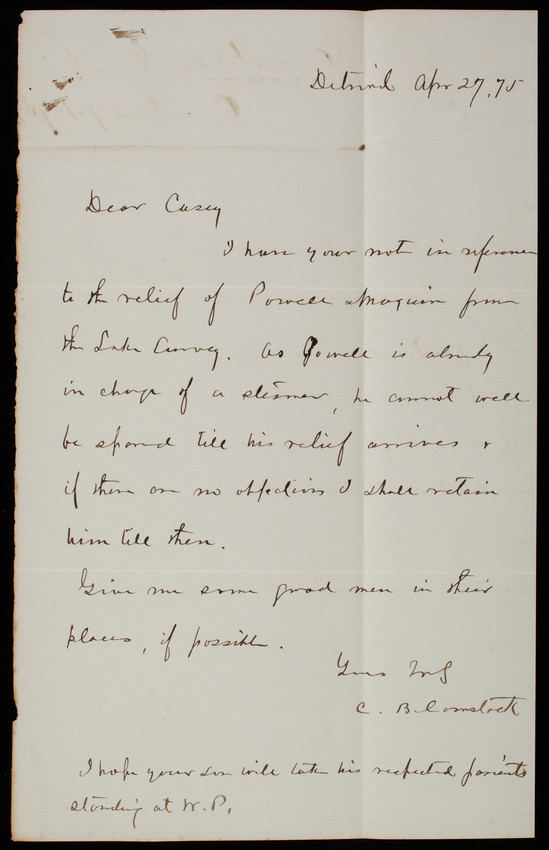 Detroit Apr 27, 75
Dear Casey
I have your note in reference
to the relief of Powell & Maguire from
the Lake Survey. As Powell is already
in charge of a steamer, he cannot well
be spared till his relief arrives &
if there are no objections I shall retain
him till then.
Give me some good men in their
places, if possible.
Yours truly
C. B. Comstock
I hope your son will take his respected parents
standing at W. P.